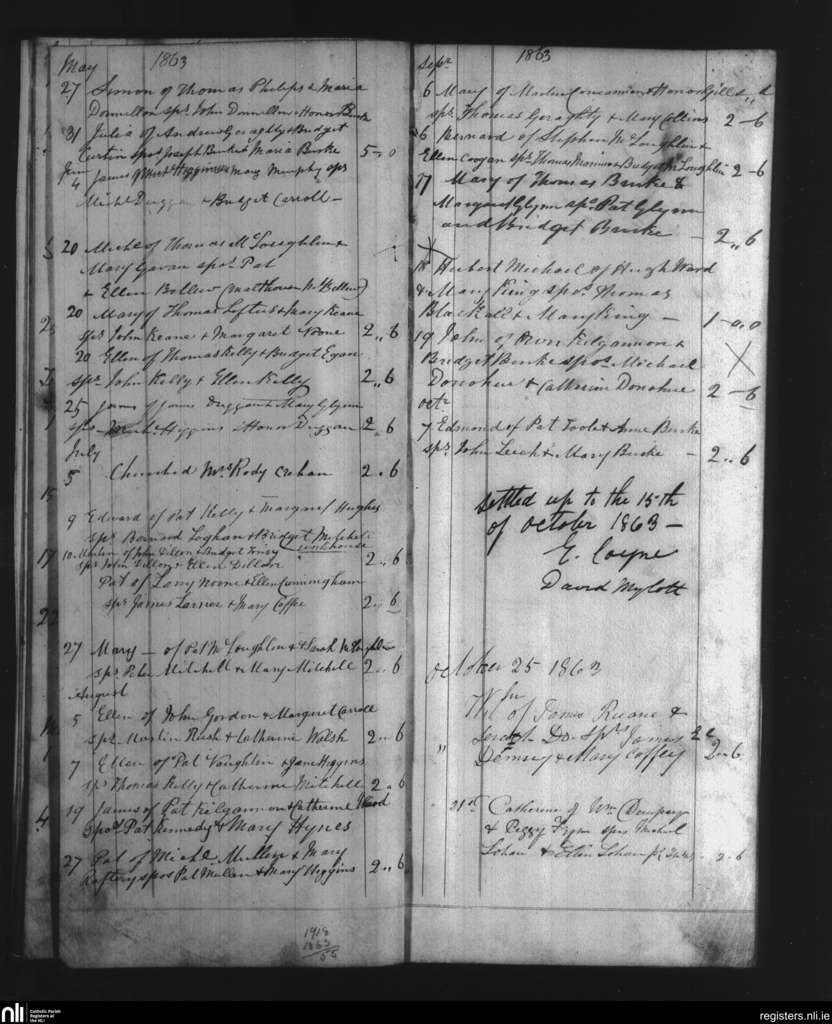 May 1863
27 Simon of Thomas Philips & Maria
Donnellon sprs John Donnellon & Honor Burke
31 Julia of Andrew Geraghty & Bridget
Curtin spos Joseph Burke & Maria Burke 5-0
June
4 James of Higgins & Mary Murphy sps
Michl Duggan & Bridget Carroll
20 Michl of Thomas McLoughlin &
Mary Gavan spos Pat
& Ellen Bellew
20 Mary of Thomas Loftus & Mary Keane
sprs John Keane & Margaret Noone 2,,6
20 Ellen of Thomas Kelly & Bridget Egan
sprs John Kelly & Ellen Kelly 2,,6
25 James of James Duggan & Mary Glynn
sprs Higgins & Honor Duggan 2,,6
July
5 Churched Mrs Rody Crehan 2,,6
9 Edward of Pat Kelly & Margaret Hughes
sprs Bernard Loghan & Bridget Mitchell
10 Martin of John Dillon & Bridget workhouse
sps John Dillon & Ellen Dillon 2,,6
Pat of Noone & Ellen Cunningham
sprs James Larner & Mary Coffee 2,,6
27 Mary - of Pat McLoughlin & Sarah McLoughlin
sprs Peter Mitchell & Mary Mitchell 2,,6
August
5 Ellen of John Gordon & Margaret Carroll
sprs Martin Rush & Catharine Walsh 2,,6
7 Ellen of Pat Loughlin & Jane Higgins
sps Thomas Kelly & Catherine Mitchell 2,,6
19 James of Pat Kilgannon & Catherine Ward
Spos Pat Kennedy & Mary Hynes
27 Pat of Michl Mullen & Mary
Raftery spos Pat Mullen & Mary Higgins 2,,6
1918
1863
55
Sepr 1863
6 Mary of Martin Concannon & Honor Gill
sprs Thomas Geraghty & Mary Collins 2-6
6 Bernard of Stephen McLoughlin &
Ellen Coogan sprs Thomas & Bridget McLoughlin 2-6
17 Mary of Thomas Burke &
Margaret Glynn spos Pat Glynn
and Bridget Burke - 2,,6
18 Hubert Michael of Hugh Ward
& Mary King spos Thomas
Blackall & Mary King - 1-0,0
19 John of Owen Kilgannon &
Bridget Burke spos Michael
Donohue & Catherine Donohue 2-6
Octr
7 Edmond of Pat Toole & Anne Burke
sprs John Leech & Mary Burke - 2,,6
Settled up to the 15th
of October 1863 -
E. Coyne
David Mylott
October 25 1863
of James Ruane &
Do Sprs James
Dempsey & Mary Coffey 2,,6
21st Catherine of Wm Dempsey
& Peggy spos Michael
Lohan & Ellen Lohan 2,,6
nli
Catholic Parish
Registers at
the NLI
registers.nli.ie